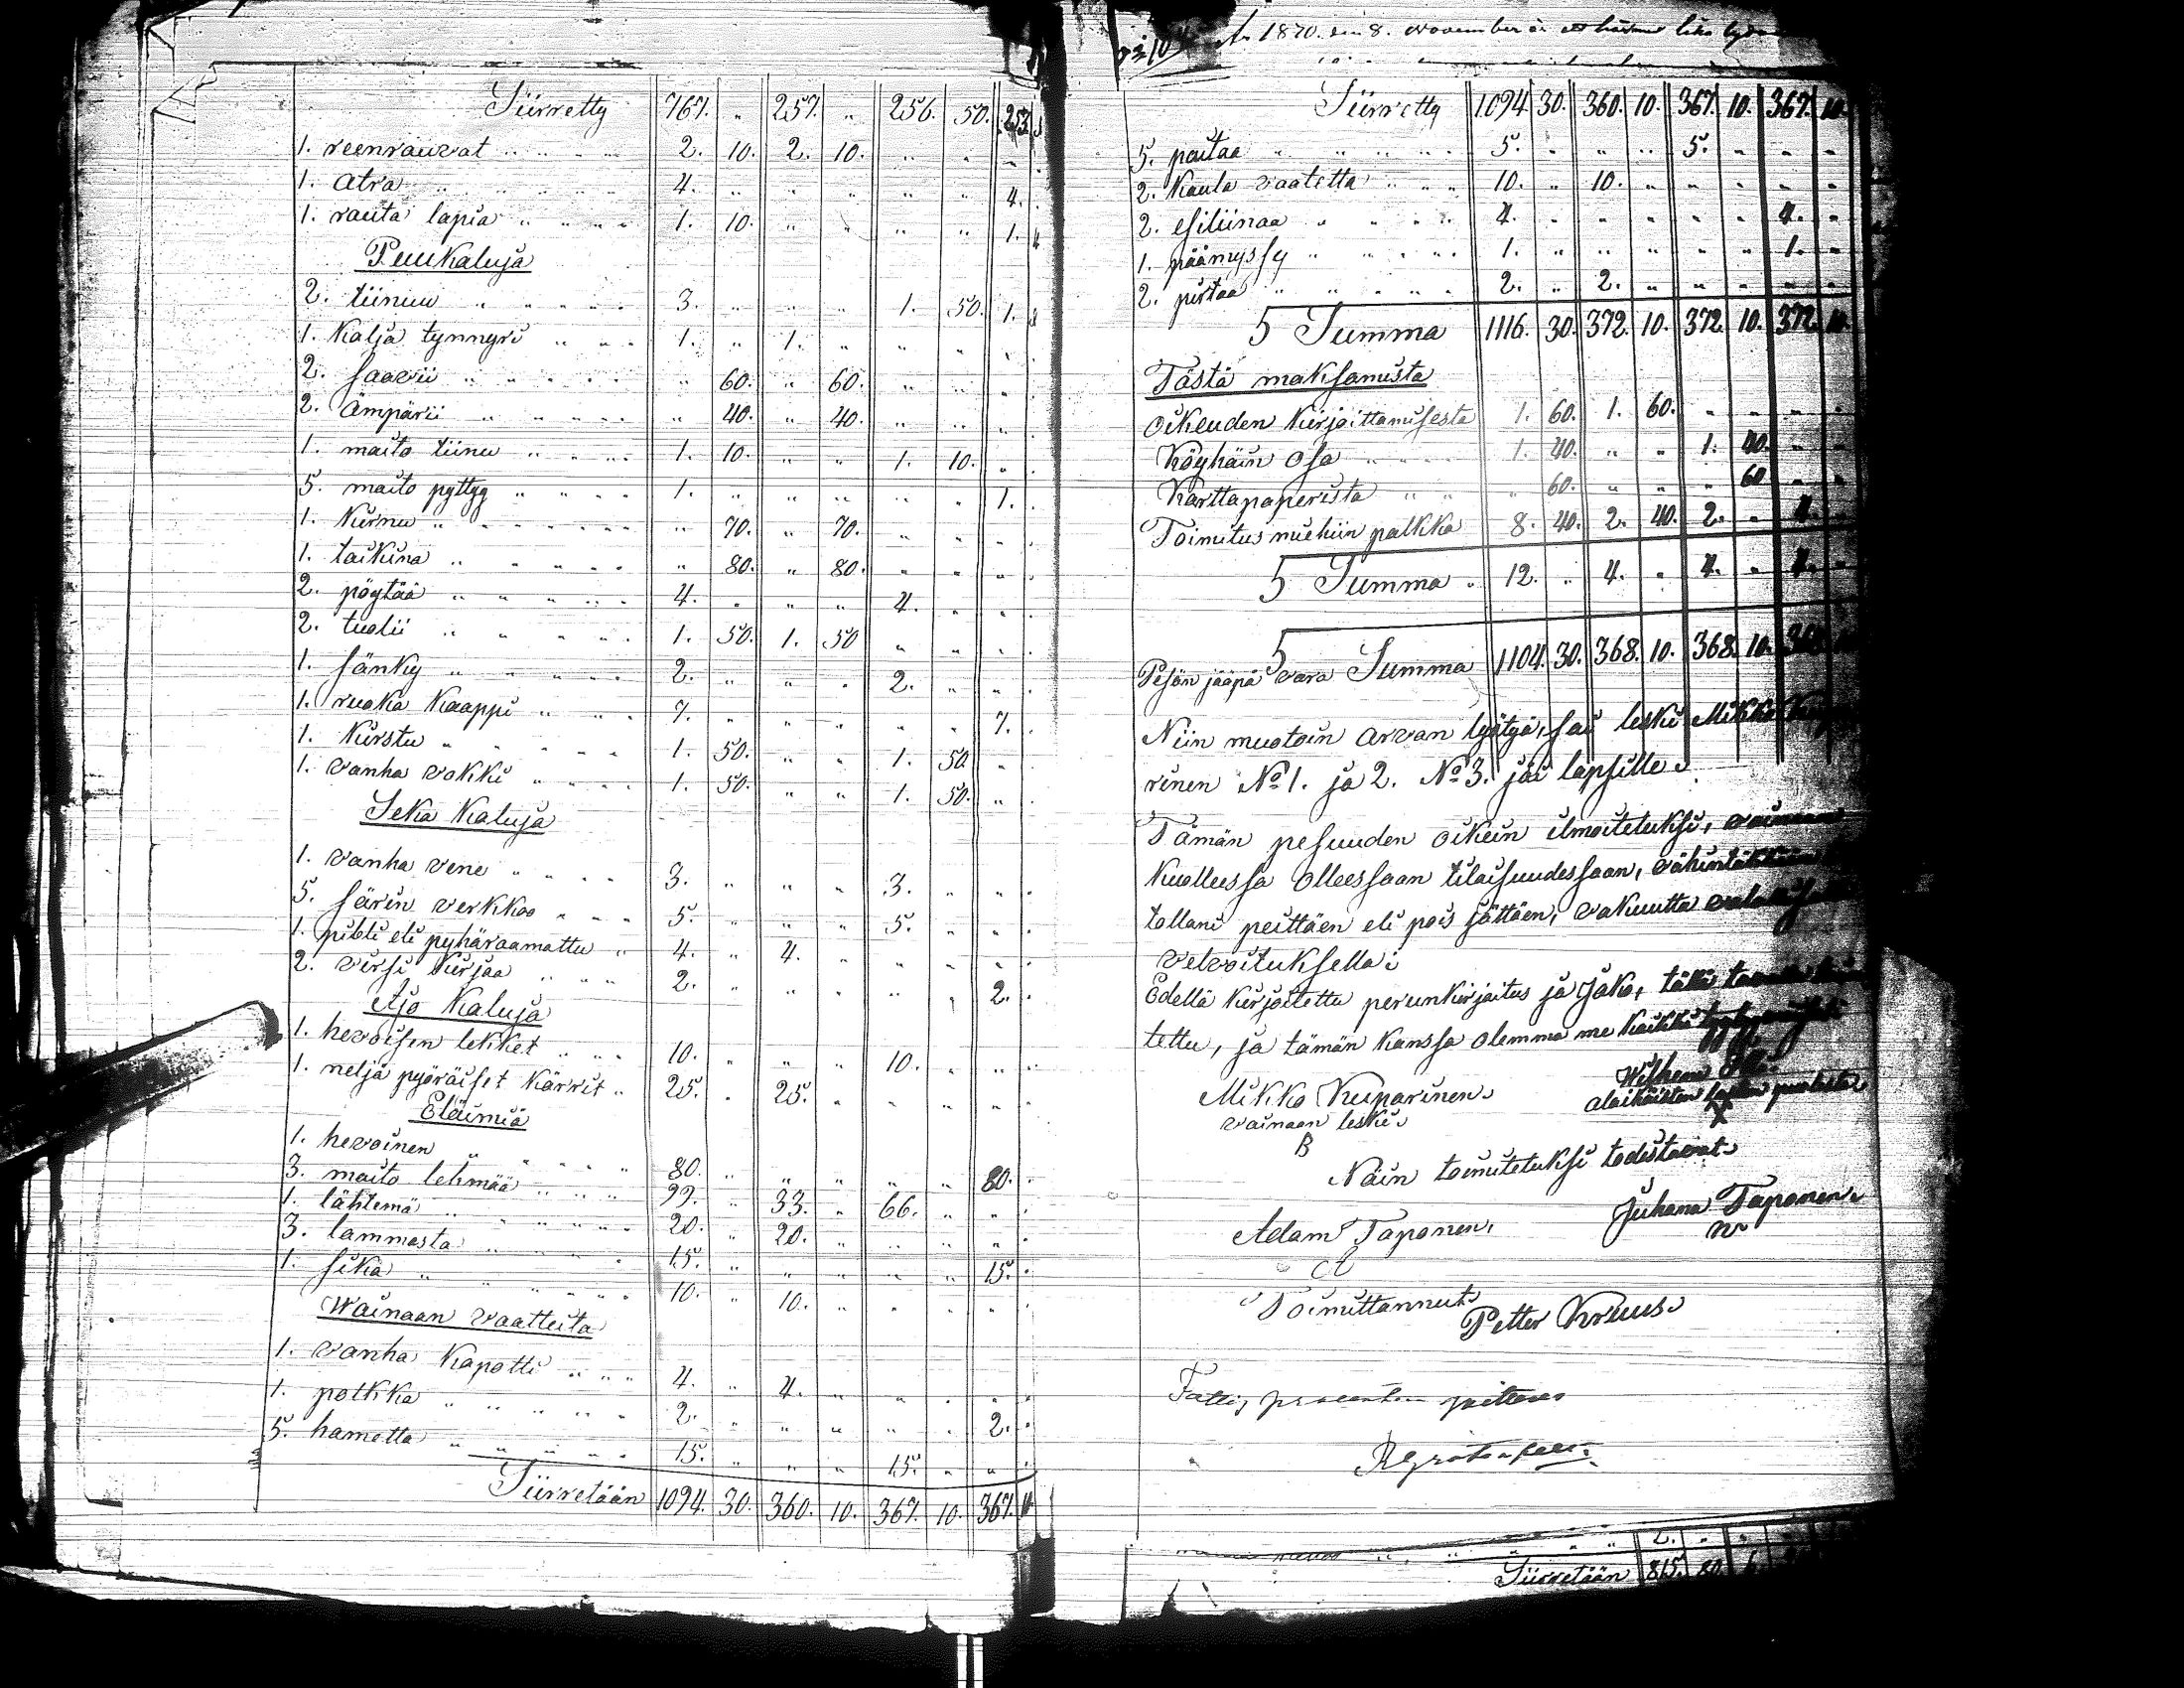 Siirretty 767. " 257. " 256. 50. 253.
1. reenrauvat " " " 2. 10. 2. 10. " " "
1. Atra " " " 4. " " " " " 4.
1. rauta lapia " " " 1. 10. " " " " 1.
Puukaluja
2. tiinuu " " " 3. " " " 1. 50. 1.
1. Kalja tynnyri " " " 1. " 1. " " " "
2. saavii " " " " 60. " 60. " " "
2. Ämpärii " " " " 40. " 40. " " "
1. maito tiinu " " " 1. 10. " " 1. 10. "
5. maito pyttyy " " " 1. " " " " " 1.
1. Kirnu " " " " 70. " 70. " " "
1. taikina " " " " 80. " 80. " " "
2. pöytää " " " 4. " " " 4. " "
2. tuolii " " " 1. 50. 1. 50 " " "
1. sänky " " " 2. " " " 2. " "
1. ruoka Kaappi " " " 7. " " " " " 7.
1. Kirstu " " " 1. 50. " " 1. 50. "
1. vanha vokki " " " 1. 50. " " 1. 50. "
Seka Kaluja
1. vanha vene " " " 3. " " " 3. " "
5. särin verkkoo " " " 5. " " " 5. " "
1. pibli eli pyhäraamattu " 4. " 4. " " " "
2. virsi Kirjaa " " " 2. " " " " " 2.
Ajo Kaluja
1. hevoisen lekket " " " 10. " " " 10. " "
1. neljä pyöräiset Kärrit " 25. " 25. " " " "
Eläimiä
1. hevoinen " " " 80. " " " " " 80.
3. maito lehmää " " " 99. " 33. " 66. " "
1. lähtemä " " " 20. " 20. " " " "
3. lammasta " " " 15. " " " " " 15.
1. sika " " " 10. " 10. " " " "
Wainaan vaatteita
1. vanha Kapotti " " " 4. " 4. " " " "
1. polkka " " " 2. " " " " " 2.
5. hametta " " " 15. " " " 15. " "
Siirretään 1094. 30. 360. 10. 367. 10. 367.
1870. den 8. November är
Siirretty 1094. 30. 360. 10. 367. 10. 367. 10.
5. paitaa " " " 5. " " " 5. " " "
2. Kaula vaatetta " " " 10. " 10. " " " " "
2. esiliinaa " " " 4. " " " " " 4. "
1. päämyssy " " " 1. " " " " " 1. "
2. pirtaa " " " 2. " 2. " " " " "
Summa 1116. 30. 372. 10. 372. 10. 372. 10.
Tästä maksamista
Oikeuden Kirjoittamisesta 1. 60. 1. 60. " " " "
Köyhäin osa " " " 1. 40. " " 1. 40. " "
Karttapaperista " " " 60. " " " 60 " "
Toimitus miehiin palkka 8. 40. 2. 40. 2. " 4. "
Summa " 12. " 4. " 4. " 4. "
Pesän jääpä vara Summa 1104. 30. 368. 10. 368. 10. 368.
Niin muotoin Arvan lyötyä, sai leski Mikko
rinen No 1. ja 2. No 3. jäi lapsille
Tämän pesuuden oikein ilmoitetuksi,
Kuollessa Olleessaan tilaisuudessaan,
tollani peittäen eli pois jättäen, vakuutta
velvoituksella:
Edellä Kirjoitettu perunkirjoitus ja Jako, tällä
tettu, ja tämän Kanssa olemma me Kaikki
Mikko Kuparinen
vainaan leski
Alaikäisten lapsen puolesta
X
Näin toimitetuksi todistavat
Adam Taponen,
Juhana Taponen
Toimittannut
Petter Kruus
Siirretään 815. 80.